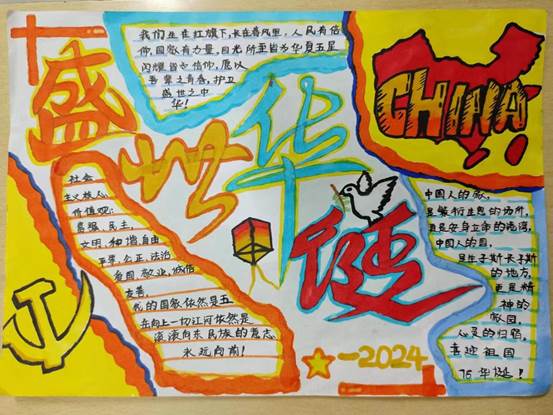 盛世华诞
我们生在红旗下,长在春风里,人民有信
仰,国家有力量,目光所至皆为华夏五星
闪耀皆为信仰,愿以
吾辈之青春,护卫
盛世之中
华!
CHINA
社会
主义核心
价值观:
富强、民主、
文明、和谐、自由
平等、公正、法治
爱国、敬业、诚信
友善,
我的国家依然是五
在向上一切江河依然是
滚滚向东民族的意志
永远向前!
中国人的家,
是繁衍生息的场所,
更是安身立命的港湾,
中国人的国,
是生于斯长于斯
的地方,
更是精
神的
家园,
心灵的归宿,
喜迎祖国
75华诞!
-2024